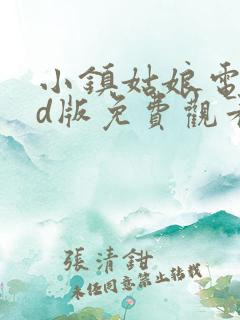 小鎮姑娘電
d版免費觀看
張清鉗
未經同意禁止轉載